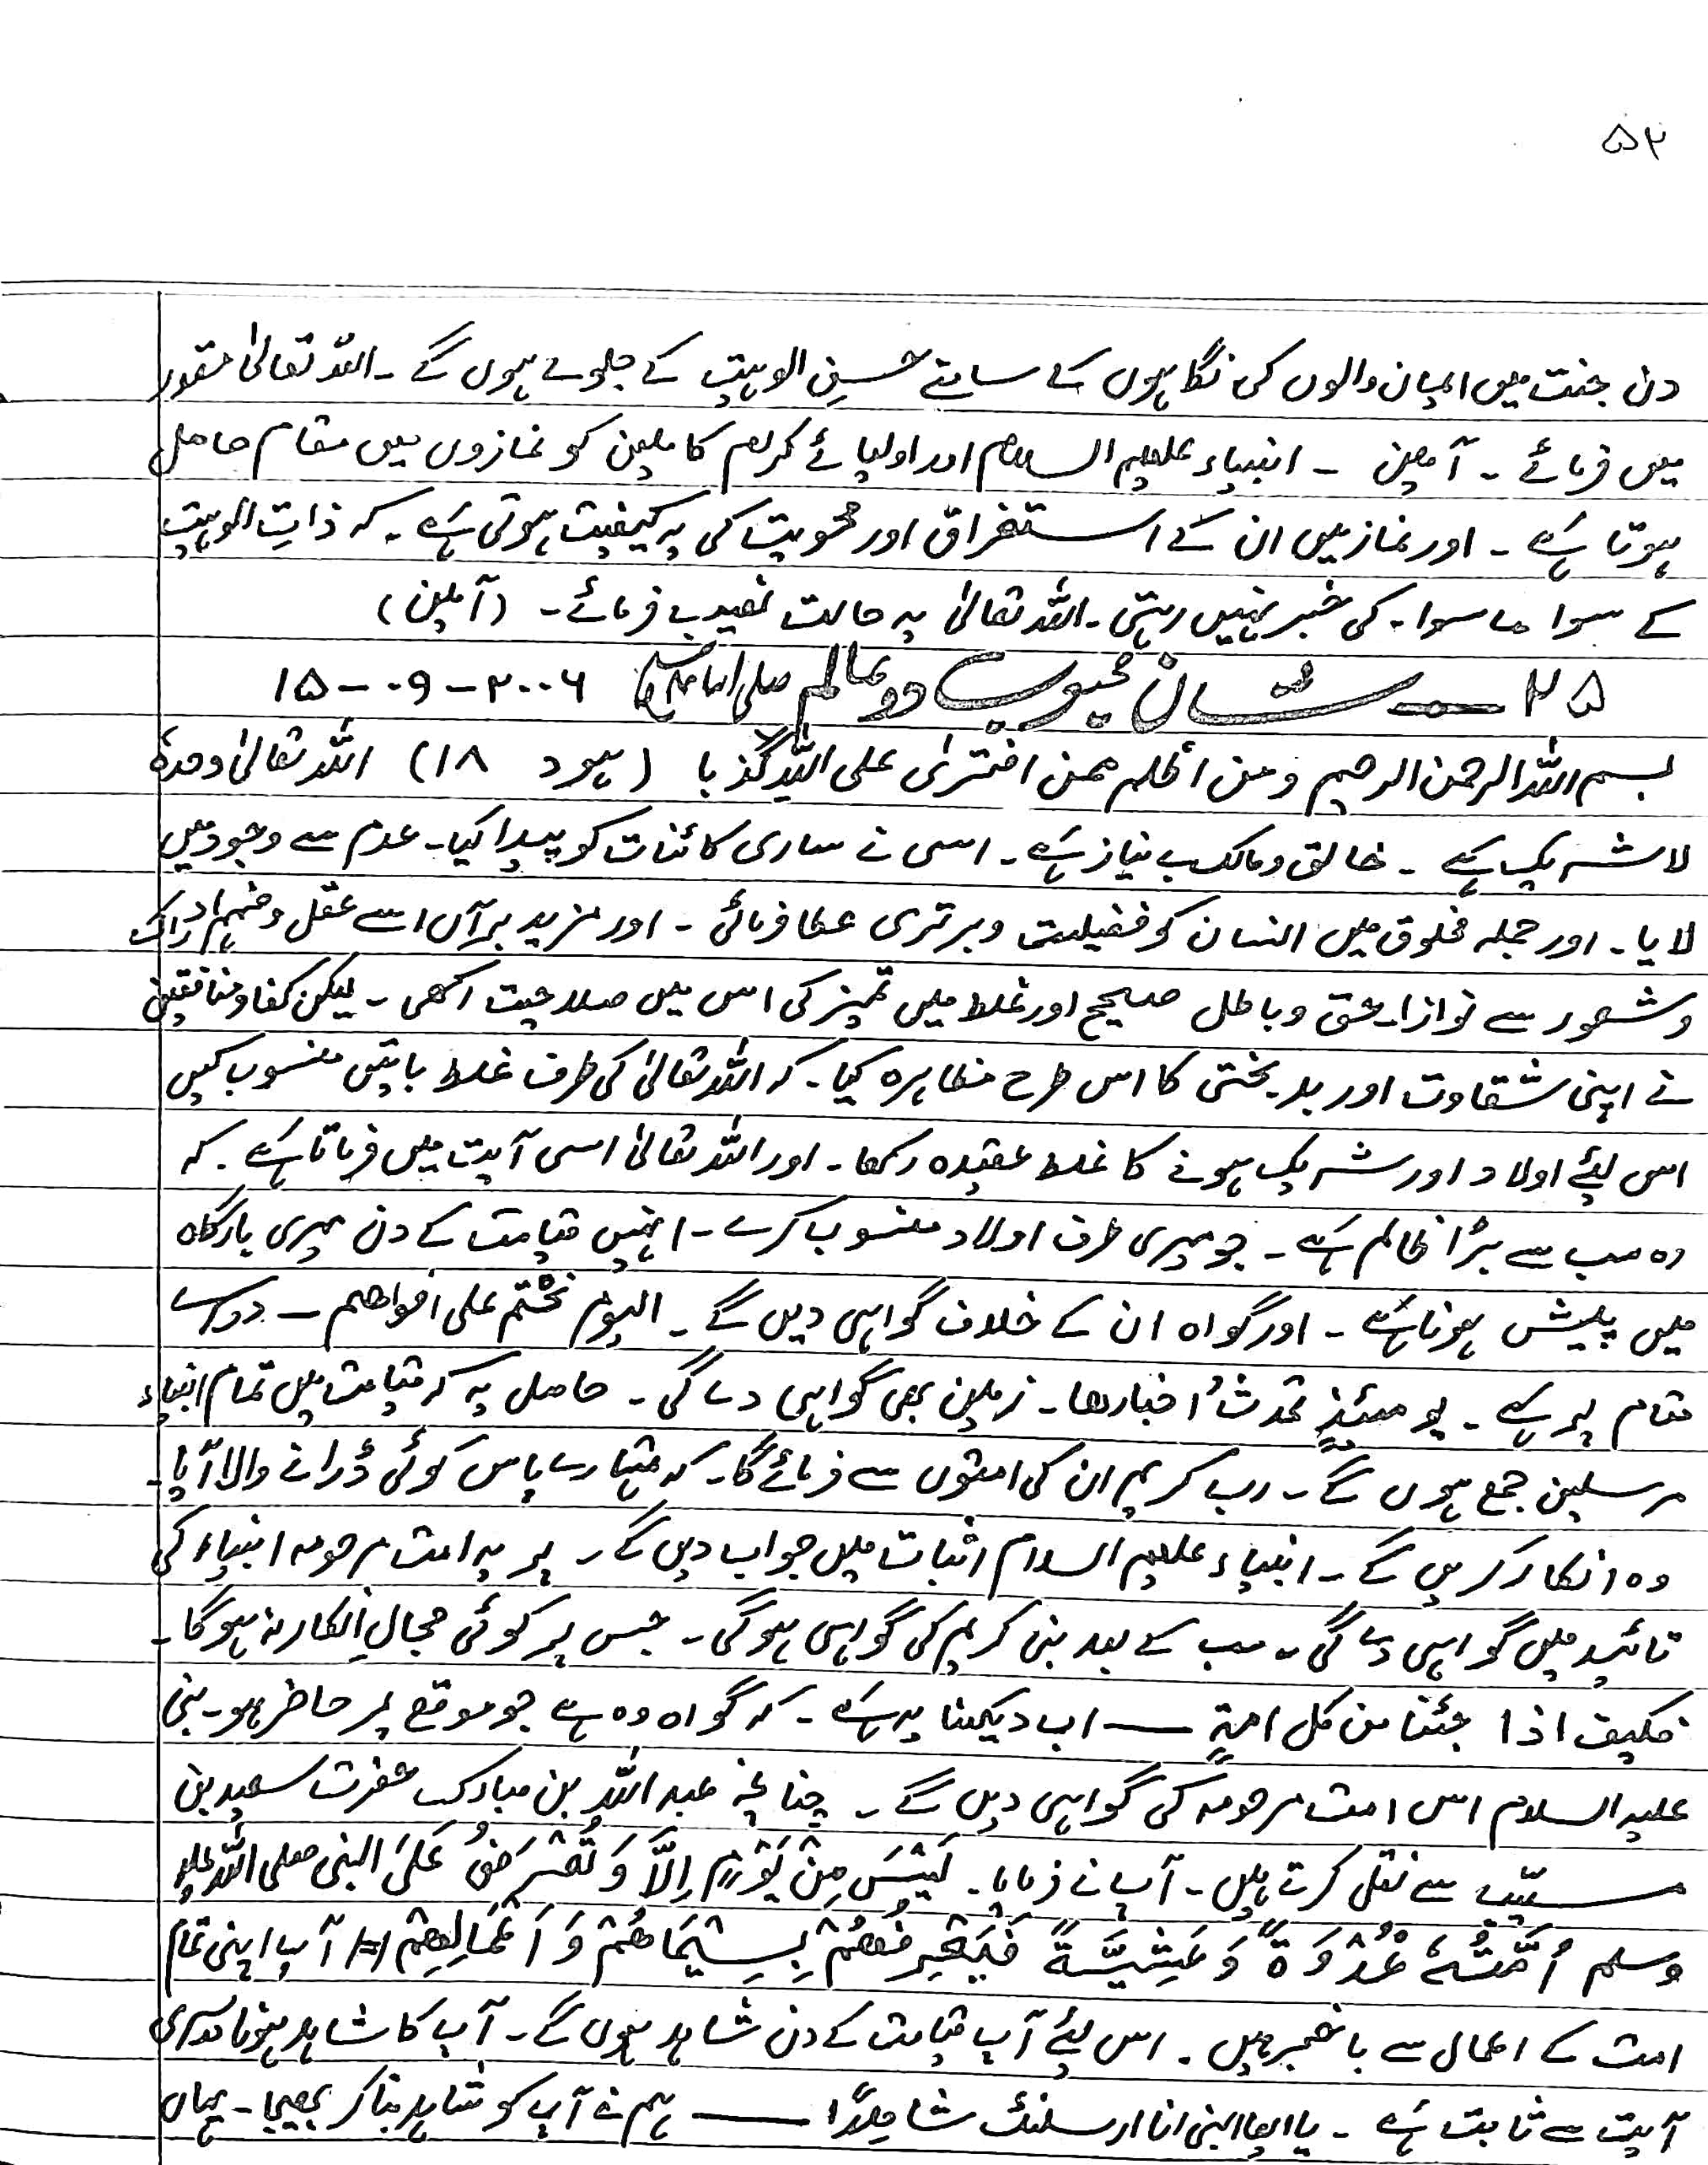 ۵۲
دن جنت میں ایمان والوں کی نگاہوں کے سامنے حسنِ الوہیت کے جلوے ہوں گے ۔ اللہ تعالیٰ مقدور
میں فرمائے ۔ آمین ۔ انبیاء علیہم السلام اور اولیائے کرام کاملین کو نمازوں میں مقام حاصل
ہوتا ہے ۔ اور نماز میں ان کے استغراق اور محویت کی یہ کیفیت ہوتی ہے ۔ کہ ذاتِ الوہیت
کے سوا ماسوا ۔ کی خبر نہیں رہتی ۔ اللہ تعالیٰ یہ حالت نصیب فرمائے ۔ (آمین)
۲۵ — شانِ محبوب دو عالم صلی اللہ علیہ وسلم ۲۰۰۶-۰۹-۱۵
بسم اللہ الرحمن الرحیم ومن اظلم ممن افتریٰ علی اللہ کذبا (ہود ۱۸) اللہ تعالیٰ وحدہٗ
لاشریک ہے ۔ خالق و مالک بے نیاز ہے ۔ اسی نے ساری کائنات کو پیدا کیا ۔ عدم سے وجود میں
لایا ۔ اور جملہ مخلوق میں انسان کو فضیلت و برتری عطا فرمائی ۔ اور مزید برآں اسے عقل و فہم ادراک
و شعور سے نوازا ۔ حق و باطل صحیح اور غلط میں تمیز کی اس میں صلاحیت رکھی ۔ لیکن کفار و منافقین
نے اپنی شقاوت اور بدبختی کا اس طرح مظاہرہ کیا ۔ کہ اللہ تعالیٰ کی طرف غلط باتیں منسوب کیں
اس لیئے اولاد اور شریک ہونے کا غلط عقیدہ رکھا ۔ اور اللہ تعالیٰ اسی آیت میں فرماتا ہے ۔ کہ
وہ سب سے بڑا ظالم ہے ۔ جو میری طرف اولاد منسوب کرے ۔ انہیں قیامت کے دن میری بارگاہ
میں پیش ہونا ہے ۔ اور گواہ ان کے خلاف گواہی دیں گے ۔ الیوم نختم علی افواھھم — دوسرے
مقام پر ہے ۔ یومئذٍ تحدثُ اخبارھا ۔ زمین بھی گواہی دے گی ۔ حاصل یہ کہ قیامت میں تمام انبیاء
مرسلین جمع ہوں گے ۔ رب کریم ان کی امتوں سے فرمائے گا ۔ کہ تمہارے پاس کوئی ڈرانے والا آیا ۔
وہ انکار کریں گے ۔ انبیاء علیہم السلام اثبات میں جواب دیں گے ۔ پر یہ امت مرحومہ انبیاء کی
تائید میں گواہی دے گی ۔ سب کے بعد نبی کریم کی گواہی ہوگی ۔ جس پر کوئی مجالِ انکار نہ ہوگا ۔
فکیف اذا جئنا من کل امۃٍ — اب دیکھنا یہ ہے ۔ کہ گواہ وہ ہے جو موقع پر حاضر ہو ۔ نبی
علیہ السلام اس امت مرحومہ کی گواہی دیں گے ۔ چنانچہ عبد اللہ بن مبارک حضرت سعید بن
مسیّب سے نقل کرتے ہیں ۔ آپ نے فرمایا ۔ لَیْسَ مِنْ یَوْمٍ اِلَّا وَ تُعْرَضُ عَلَی النبی صلی اللہ علیہ
وسلم اُمَّتُہٗ غُدْوَۃً وَ عَشِیَّۃً فَیَعْرِفُھُمْ بِسِیْمَاھُمْ وَ اَعْمَالِھِمْ آپ اپنی تمام
امت کے اعمال سے باخبر ہیں ۔ اس لیئے آپ قیامت کے دن شاہد ہوں گے ۔ آپ کا شاہد ہونا دوسری
آیت سے ثابت ہے ۔ یا ایھا النبی انا ارسلنٰک شاھدًا — ہم نے آپ کو شاہد بنا کر بھیجا ۔ یہاں